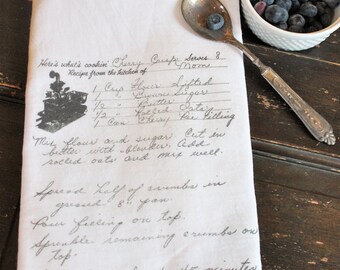 Here's what's cookin' Cherry Crisp Serves 8
Recipe from the kitchen of Moms
1 Cup Flour Sifted
1/2 " Brown Sugar
1/2 " Butter
1/2 " Rolled Oats
1 Can Cherry Pie Filling
Mix flour and sugar. Cut in
butter with blender. Add
rolled oats and mix well.
Spread half of crumbs in
greased 8" pan
Pour filling on top.
Sprinkle remaining crumbs on
top.
45 minutes